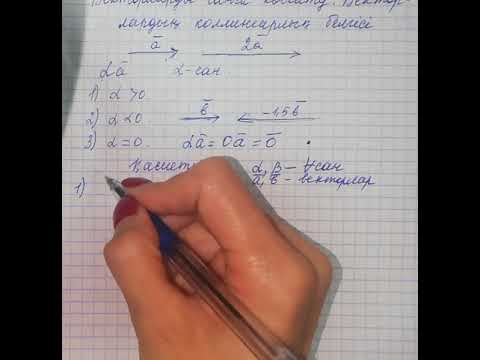 Векторларды санға көбейту. Вектор-
лардың коллинеарлық белгісі
a̅ 2a̅
αa̅ α-сан
1) α > 0
2) α < 0 b̅ -1,5b̅
3) α = 0. αa̅ = 0a̅ = 0̅
Қасиет α, β - ∀ сан
1) a̅, b̅ - векторлар